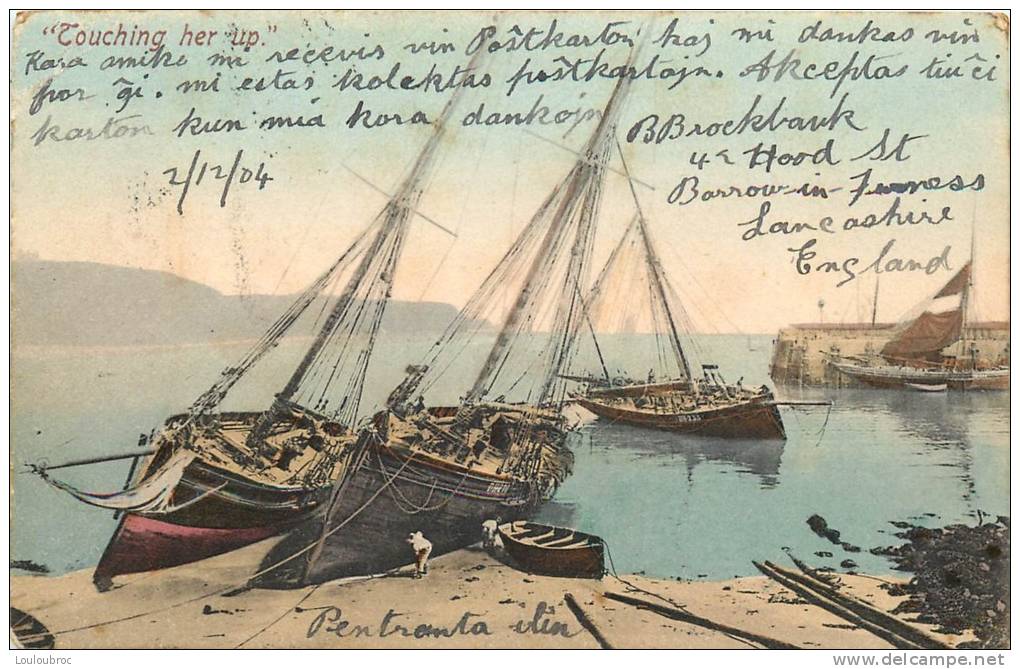 "Touching her up."
Kara amiko mi recevis vin Poŝtkarton kaj mi dankas vin
por ĝi. mi estas kolektas poŝtkartojn. Akceptas tiuĉi
karton kun mia kora dankojn
2/12/04
B Brockbank
42 Hood St
Barrow-in-Furness
Lancashire
England
Pentranta ilin
© Louloubroc
www.delcampe.net